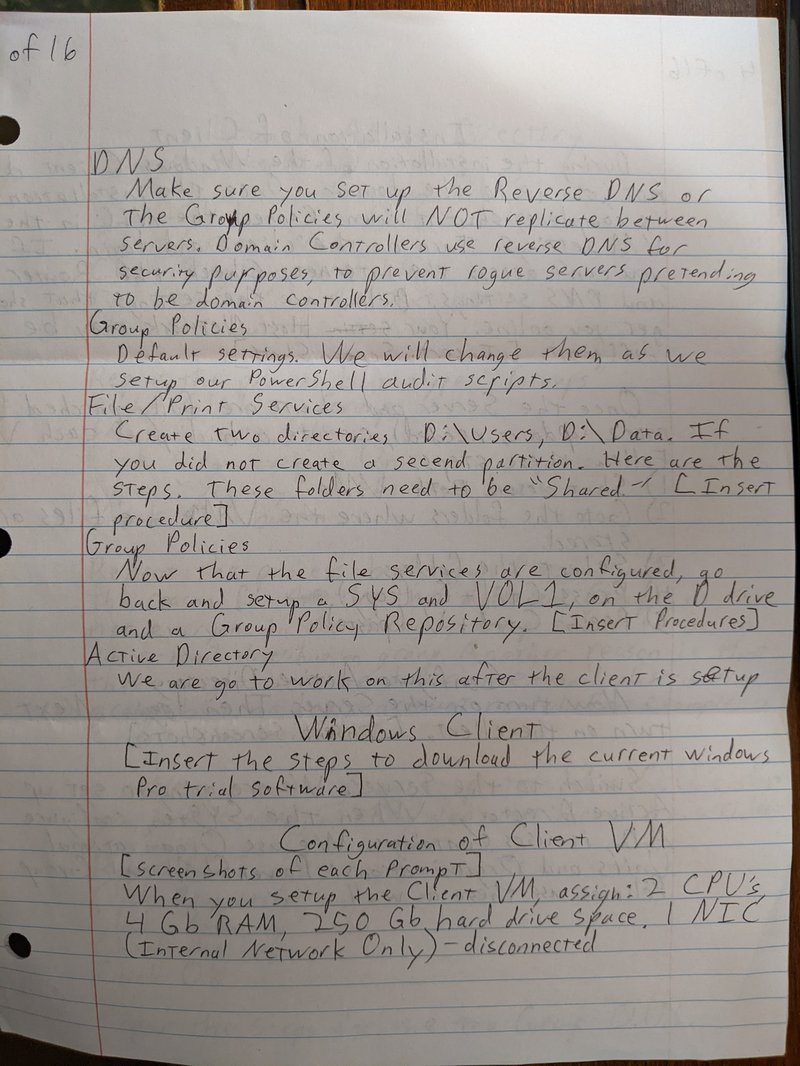 of 16
DNS
Make sure you set up the Reverse DNS or
The Group Policies will NOT replicate between
servers. Domain Controllers use reverse DNS for
security purposes, to prevent rogue servers pretending
to be domain controllers.
Group Policies
Default settings. We will change them as we
setup our PowerShell audit scripts.
File/Print Services
Create two directories D:\Users, D:\Data. If
you did not create a secend partition. Here are the
steps. These folders need to be "Shared" [Insert
procedure]
Group Policies
Now that the file services are configured, go
back and setup a SYS and VOL1, on the D drive
and a Group Policy Repository. [Insert Procedures]
Active Directory
We are go to work on this after the client is setup
Windows Client
[Insert the steps to download the current windows
Pro trial software]
Configuration of Client VM
[screenshots of each Prompt]
When you setup the Client VM, assign: 2 CPU's,
4 Gb RAM, 250 Gb hard drive space. 1 NIC
(Internal Network Only) - disconnected